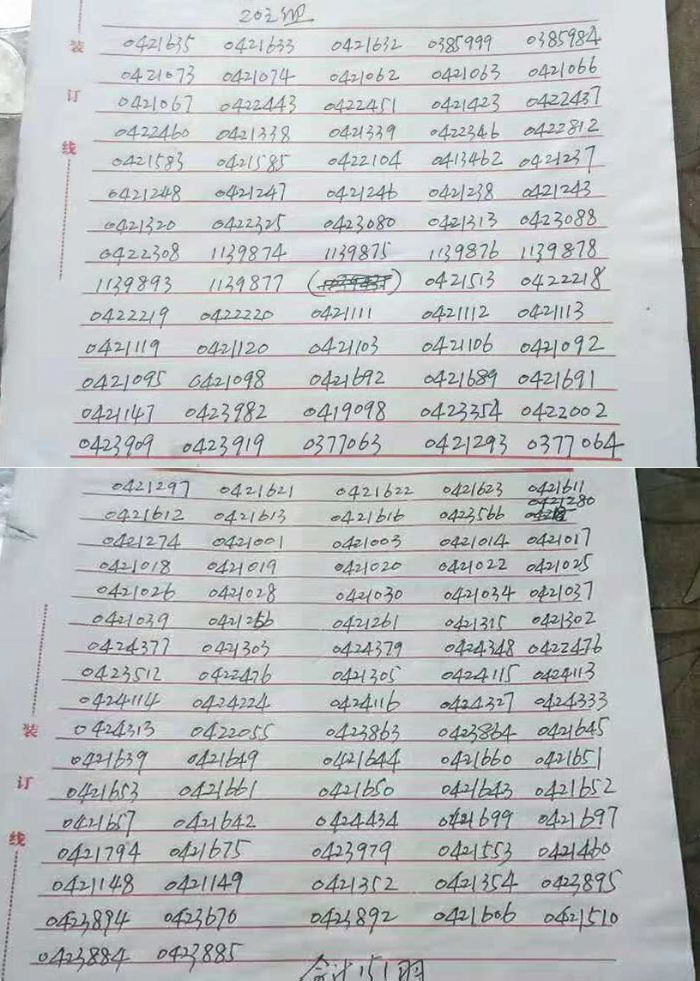 0421635 0421633 0421632 0385999 0385984
装
0421073 0421074 0421062 0421063 0421066
订
0421067 0422443 0422451 0421423 0422437
0422460 0421338 0421339 0422346 0422812
线
0421583 0421585 0422104 0413462 0421237
0421248 0421247 0421246 0421238 0421243
0421320 0422325 0423080 0421313 0423088
0422308 1139874 1139875 1139876 1139878
1139893 1139877 0421513 0422218
0422219 0422220 0421111 0421112 0421113
0421119 0421120 0421103 0421106 0421092
0421095 0421098 0421692 0421689 0421691
0421147 0423982 0419098 0423354 0422002
0423909 0423919 0377063 0421293 0377064
0421297 0421621 0421622 0421623 0421611
0421280
0421612 0421613 0421616 0423566
0421274 0421001 0421003 0421014 0421017
0421018 0421019 0421020 0421022 0421025
0421026 0421028 0421030 0421034 0421037
0421039 0421266 0421261 0421315 0421302
0424377 0421303 0424379 0424348 0422476
0423512 0422476 0421305 0424115 0424113
0424114 0424224 0424116 0424327 0424333
装
0424313 0422055 0423863 0423864 0421645
0421639 0421649 0421644 0421660 0421651
订
0421653 0421661 0421650 0421643 0421652
0421657 0421642 0424434 0421699 0421697
线
0421794 0421675 0423979 0421553 0421460
0421148 0421149 0421352 0421354 0423895
0423894 0423670 0423892 0421606 0421510
0423884 0423885
合计151羽